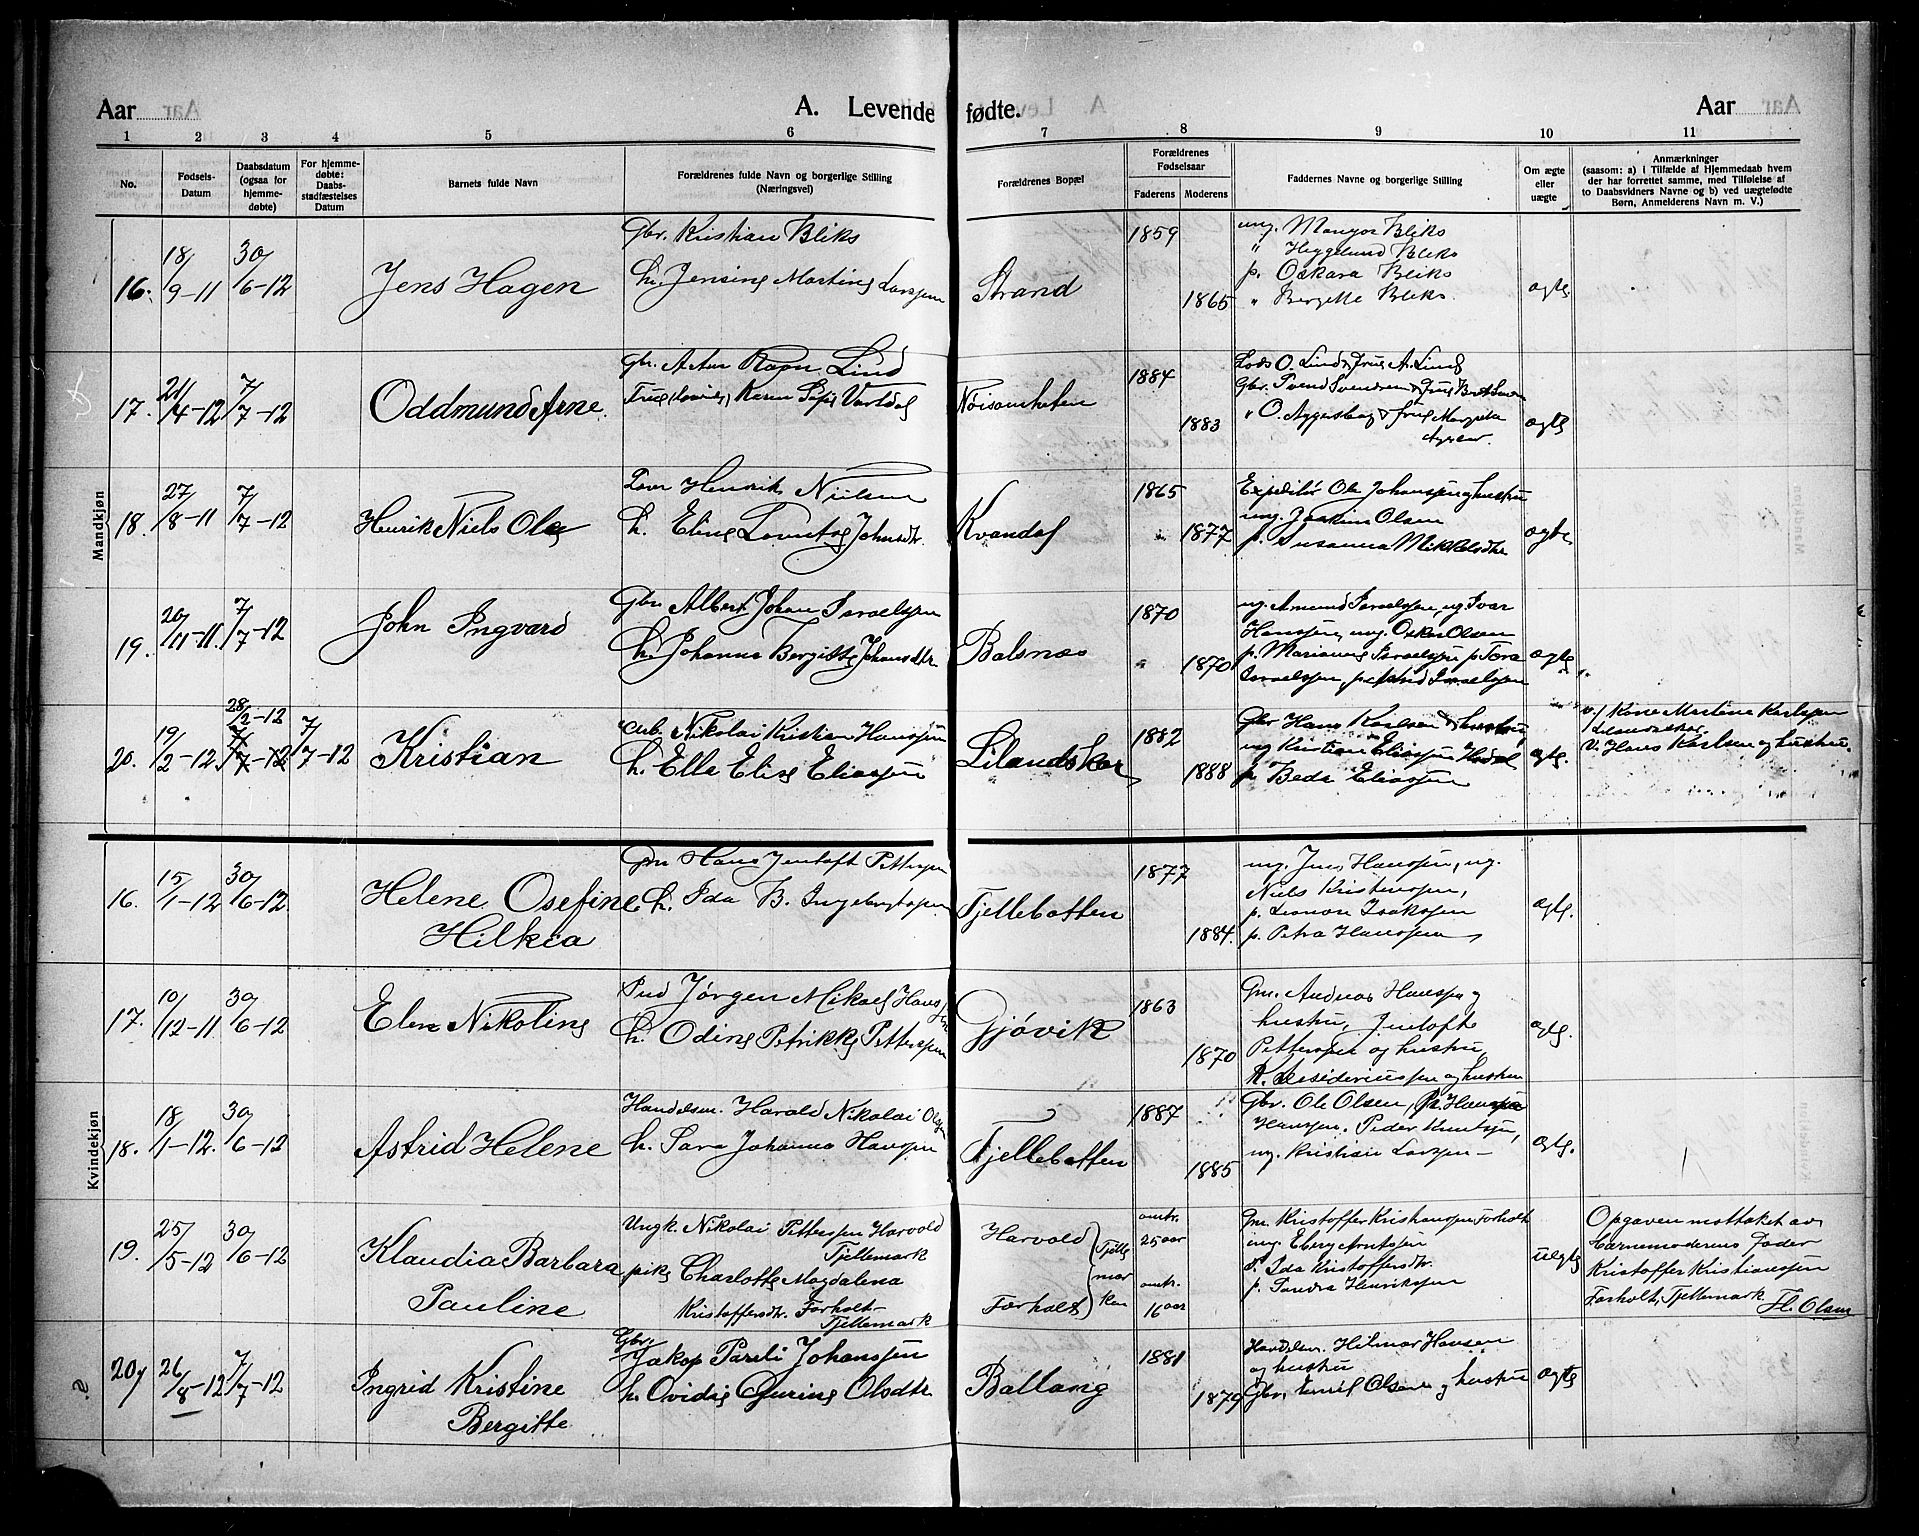 Aar
A. Levende fødte.
Aar
1 2 3 4 5 6 7 8 9 10 11
No.
Fødsels-
Datum
Daabsdatum
(ogsaa for
hjemme-
døbte)
For hjemme-
døbte:
Daabs-
stadfæstelses
Datum
Barnets fulde Navn
Forældrenes fulde Navn og borgerlige Stilling
(Næringsvei)
Forældrenes Bopæl
Forældrenes
Fødselsaar
Faderens Moderens
Faddernes Navne og borgerlige Stilling
Om ægte
eller
uægte
Anmærkninger
(saasom: a) i Tilfælde af Hjemmedaab hvem
der har forrettet samme, med Tilføielse af
to Daabsvidners Navne og b) ved uægtefødte
Børn, Anmelderens Navn m. V.)
Mandkjøn
16. 18/9-11 30/6-12 Jens Hagen
Gbr. Kristian Bliks
h. Jensine Martine Larssen
Strand 1859 1865
ung. Mangor Bliks
" Heggelund Bliks
p. Oskara Bliks
" Bergitte Bliks
ægte
17. 21/4-12 7/7-12 Oddmund Arne
Lind
Karen
1884 1883
ægte
18. 27/8-11 7/7-12 Henrik Niels Olaj
Henrik Nielsen
h. Eline Johnsdtr.
Kvandal 1865 1877
Expeditør Ole Johanssen og hustru
ung. Joakim Olsen
p. Susanna Mikkelsdtr
ægte
19. 20/11-11. 7/7-12 John Ingvard
Gbr Albert Johan Israelssen
h. Johanna Bergitte Johansdtr
Balsnes 1870 1870
ug. Amund Israelssen, ug Ivar
Hanssen, ung. Oskar Olsen
p. Marianne Israelssen p. Tora
Israelssen, Israelssen
ægte
20. 19/2-12 28/2-12 7/7-12 7/7-12 Kristian
arb. Nikolai Kristian Hanssen
h. Ella Elise Eliassen
Lilandskar 1882 1888
Gbr Hans Karlsen & hustru,
ug Kristian Eliassen
p. Beda Eliassen
ægte.
v/ Kone Martine Karlssen
Lilandskar
V. Hans Karlsen og hustru.
Kvindekjøn
16. 15/1-12 30/6-12 Helene Osefine
Hilkia
Gm Hans Jentoft Petterssen
h. Ida B. Ingebrigtssen
Fjellebotten 1877 1884.
ug. Jens Hanssen, ug.
Niels Kristenssen,
p. Leonore Isakssen
p. Petra Hanssen
ægte.
17. 10/12-11 30/6-12 Elen Nikoline
Ind Jørgen Mikael Hanssen
h. Odine Petrikke Petterssen
Gjøvik 1863 1870
Gm. Andreas Hanssen og
hustru, Jentoft
Petterssen og hustru,
K. Desideriussen og hustru
ægte.
18. 18/1-12. 30/6-12 Astrid Helene
Handelsm. Harald Nikolai Olsen
h. Sara Johanna Hanssen
Fjellebotten 1887 1885
Gbr. Ole Olsen,
Hanssen. Peder Knutsen,
ug. Kristian Larssen
ægte.
19. 25/5-12 30/6-12 Klaudia Barbara
Pauline
Ungk. Nikolai Petterssen Harvold
Tjellemark
pike Charlotte Magdalena
Kristoffersdtr. Forholt
Tjellemark
Harvold
Forholt
Tjelle
mar
ken
omtr.
25 aar
omtr.
16 aar
Gm. Kristoffer Kristianssen Forholt
ung. Eberg Arntssen
p. Ida Kristoffersdtr.
p. Sandra Henrikssen
uægte
Opgaven mottaket av
barnemoderens fader
Kristoffer Kristianssen
Forholt, Tjellemark Fl. Olsen
20 26/8-12 7/7-12 Ingrid Kristine
Bergitte
Gbr.
Jakop Pareli Johanssen
h. Ovidie Gurine Olsdtr
Ballang 1881 1879
Handelsm. Hilmar Hansen
og hustru
Gbr. Emil Olsen og hustru
ægte